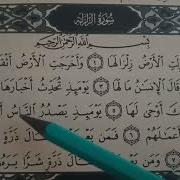 سُورَةُ الزَّلْزَلَةِ
بِسْمِ اللَّهِ الرَّحْمَٰنِ الرَّحِيمِ
الْأَرْضُ زِلْزَالَهَا ١ وَأَخْرَجَتِ الْأَرْضُ
قَالَ الْإِنسَٰنُ مَا لَهَا ٣ يَوْمَئِذٍ تُحَدِّثُ أَخْبَارَهَا
أَوْحَىٰ لَهَا ٥ يَوْمَئِذٍ يَصْدُرُ النَّاسُ
أَعْمَٰلَهُمْ ٦ فَمَن ذَرَّةٍ
ذَرَّةٍ شَرًّا يَرَهُ